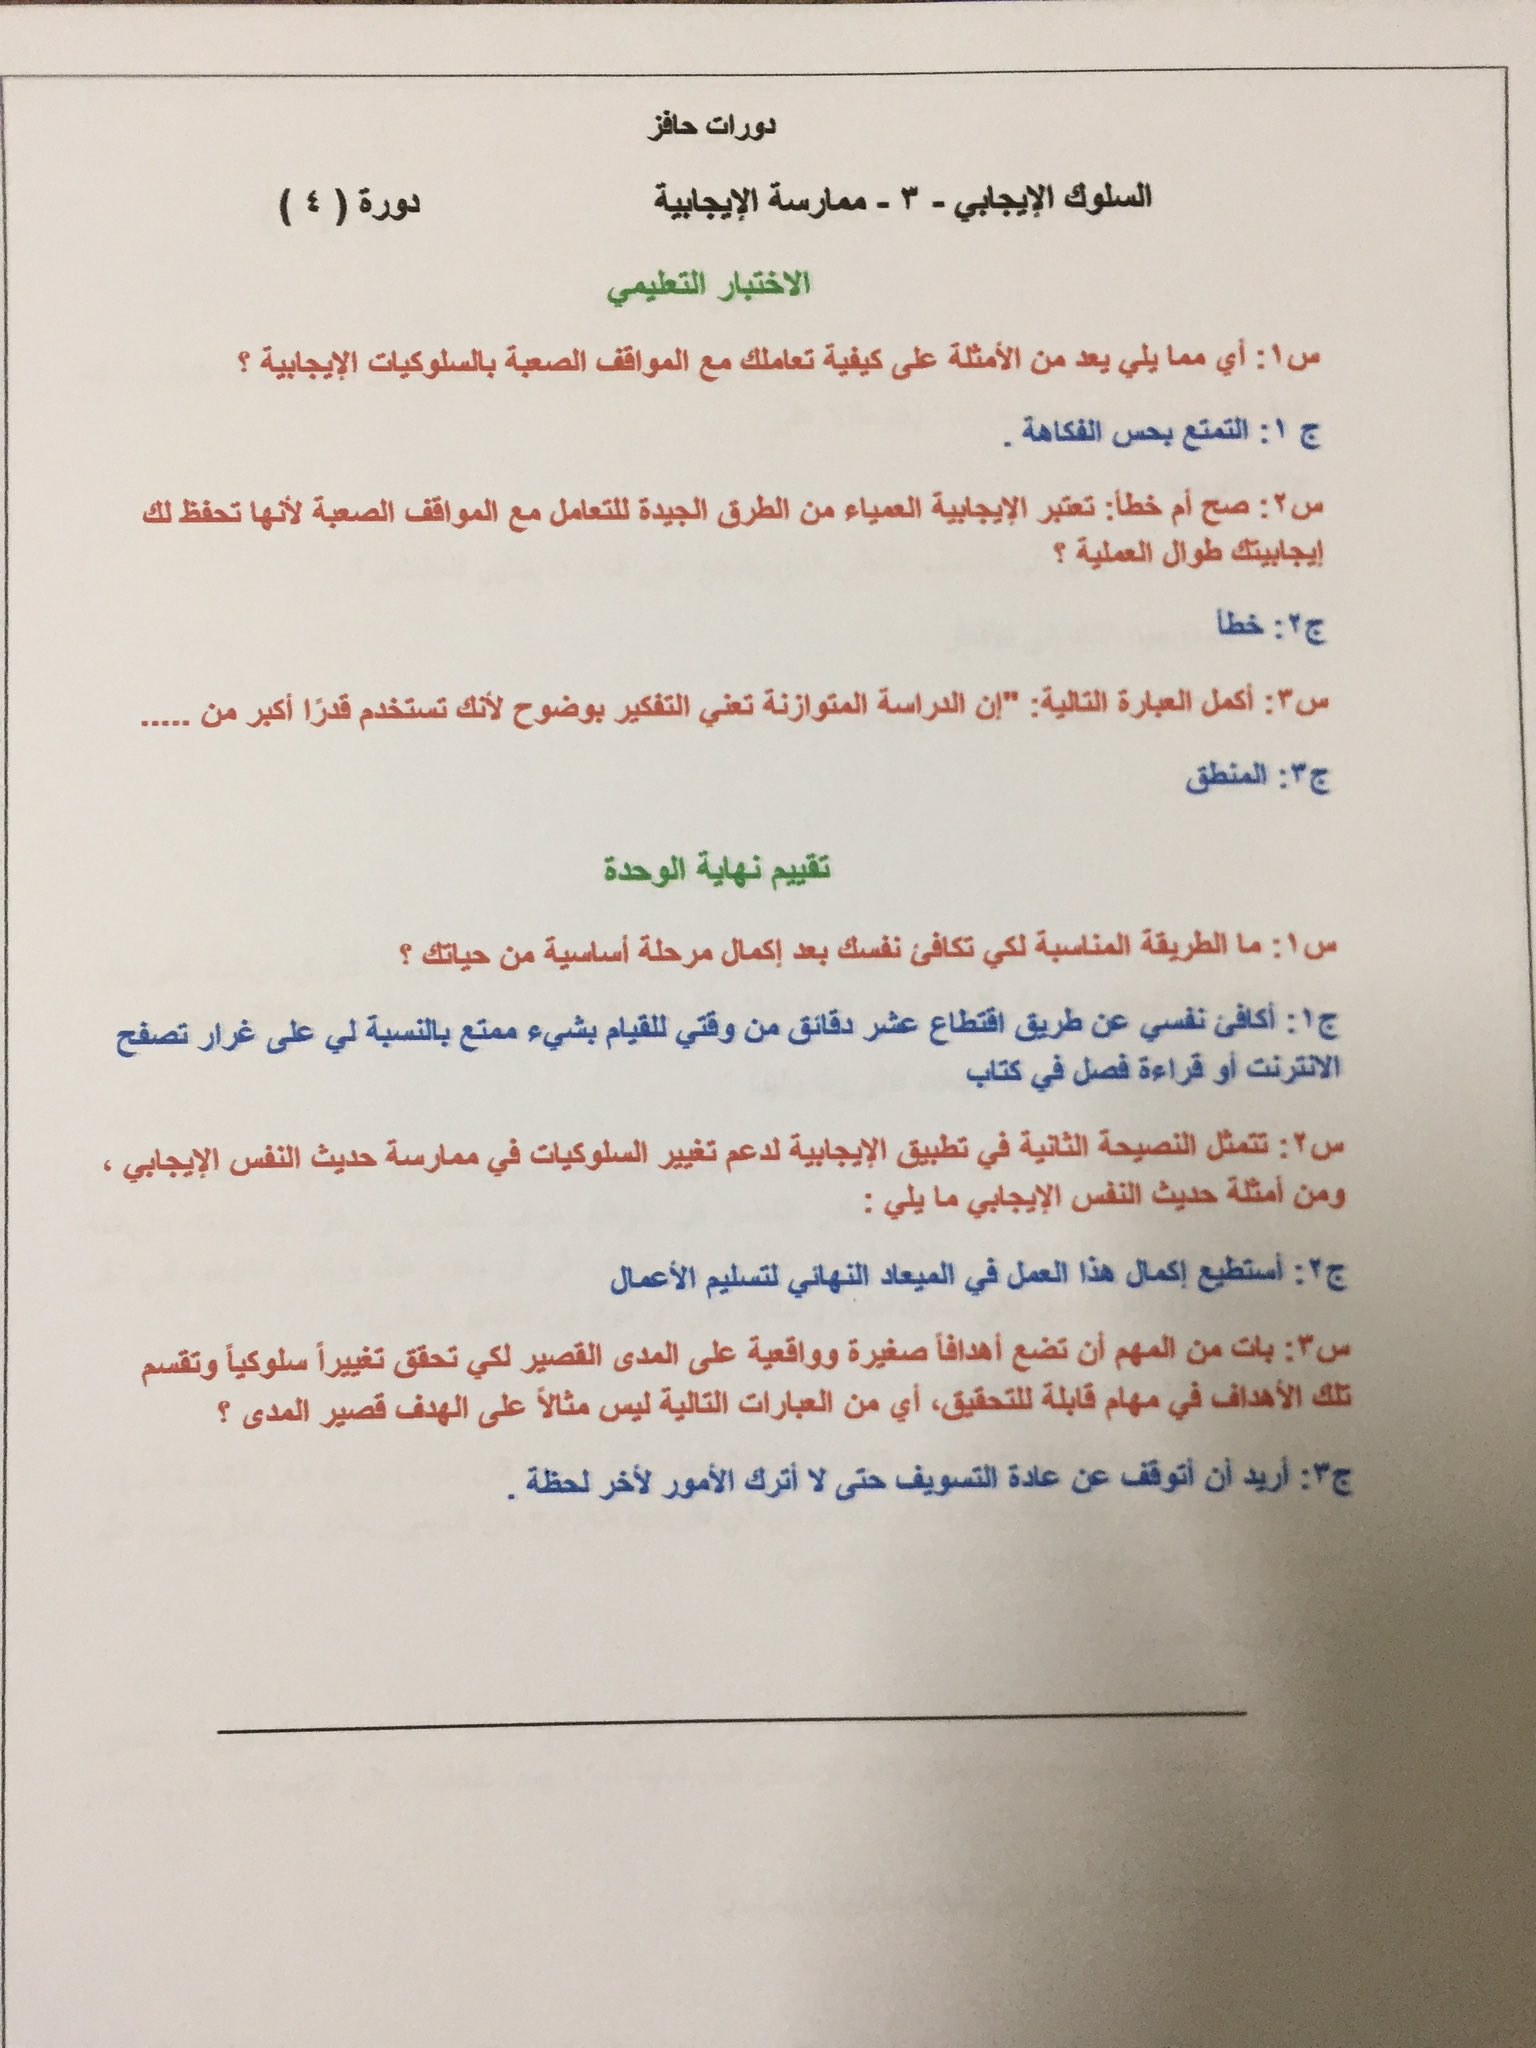 دورات حافز
السلوك الإيجابي - ٣ - ممارسة الإيجابية دورة ( ٤ )
الاختبار التعليمي
س١: أي مما يلي يعد من الأمثلة على كيفية تعاملك مع المواقف الصعبة بالسلوكيات الإيجابية ؟
ج ١: التمتع بحس الفكاهة .
س٢: صح أم خطأ: تعتبر الإيجابية العمياء من الطرق الجيدة للتعامل مع المواقف الصعبة لأنها تحفظ لك
إيجابيتك طوال العملية ؟
ج٢: خطأ
س٣: أكمل العبارة التالية: "إن الدراسة المتوازنة تعني التفكير بوضوح لأنك تستخدم قدرًا أكبر من .....
ج٣: المنطق
تقييم نهاية الوحدة
س١: ما الطريقة المناسبة لكي تكافئ نفسك بعد إكمال مرحلة أساسية من حياتك ؟
ج١: أكافئ نفسي عن طريق اقتطاع عشر دقائق من وقتي للقيام بشيء ممتع بالنسبة لي على غرار تصفح
الانترنت أو قراءة فصل في كتاب
س٢: تتمثل النصيحة الثانية في تطبيق الإيجابية لدعم تغيير السلوكيات في ممارسة حديث النفس الإيجابي ،
ومن أمثلة حديث النفس الإيجابي ما يلي :
ج٢: أستطيع إكمال هذا العمل في الميعاد النهائي لتسليم الأعمال
س٣: بات من المهم أن تضع أهدافاً صغيرة وواقعية على المدى القصير لكي تحقق تغييراً سلوكياً وتقسم
تلك الأهداف في مهام قابلة للتحقيق، أي من العبارات التالية ليس مثالاً على الهدف قصير المدى ؟
ج٣: أريد أن أتوقف عن عادة التسويف حتى لا أترك الأمور لأخر لحظة .